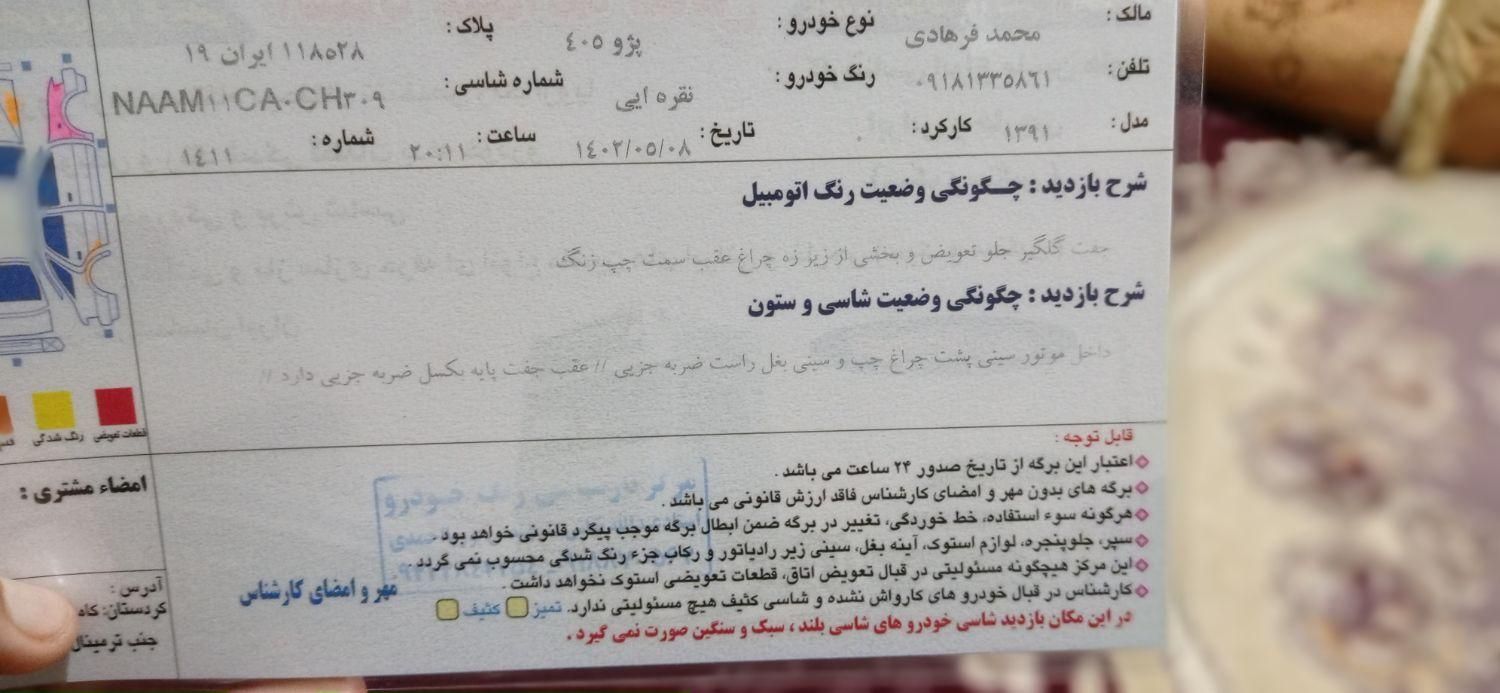 مالک : محمد فرهادی نوع خودرو : پژو ۴۰۵ پلاک : ۱۱۸۵۲۸ ایران ۱۹
تلفن : ۰۹۱۸۱۳۳۵۸۶۱ رنگ خودرو : نقره ایی شماره شاسی : NAAM۱۱CA۰CH۳۰۹
مدل : ۱۳۹۱ کارکرد : ۰ تاریخ : ۱۴۰۲/۰۵/۰۸ ساعت : ۲۰:۱۱ شماره : ۱۴۱۱
شرح بازدید : چگونگی وضعیت رنگ اتومبیل
جفت گلگیر جلو تعویض و بخشی از زیر زه چراغ عقب سمت چپ رنگ
شرح بازدید : چگونگی وضعیت شاسی و ستون
داخل موتور سینی پشت چراغ چپ و سینی بغل راست ضربه جزیی // عقب جفت پایه بکسل ضربه جزیی دارد //
قطعات تعویضی رنگ شدگی
قابل توجه :
اعتبار این برگه از تاریخ صدور ۲۴ ساعت می باشد .
برگه های بدون مهر و امضای کارشناس فاقد ارزش قانونی می باشد .
هرگونه سوء استفاده، خط خوردگی، تغییر در برگه ضمن ابطال برگه موجب پیگرد قانونی خواهد بود .
سپر، جلوپنجره، لوازم استوک، آینه بغل، سینی زیر رادیاتور و رکاب جزء رنگ شدگی محسوب نمی گردد .
این مرکز هیچگونه مسئولیتی در قبال تعویض اتاق، قطعات تعویضی استوک نخواهد داشت .
کارشناس در قبال خودرو های کارواش نشده و شاسی کثیف هیچ مسئولیتی ندارد. تمیز کثیف
در این مکان بازدید شاسی خودرو های شاسی بلند ، سبک و سنگین صورت نمی گیرد .
مهر و امضای کارشناس
امضاء مشتری :
آدرس :
کردستان:
جنب ترمینال